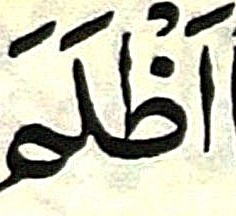 اَظْلَمَ